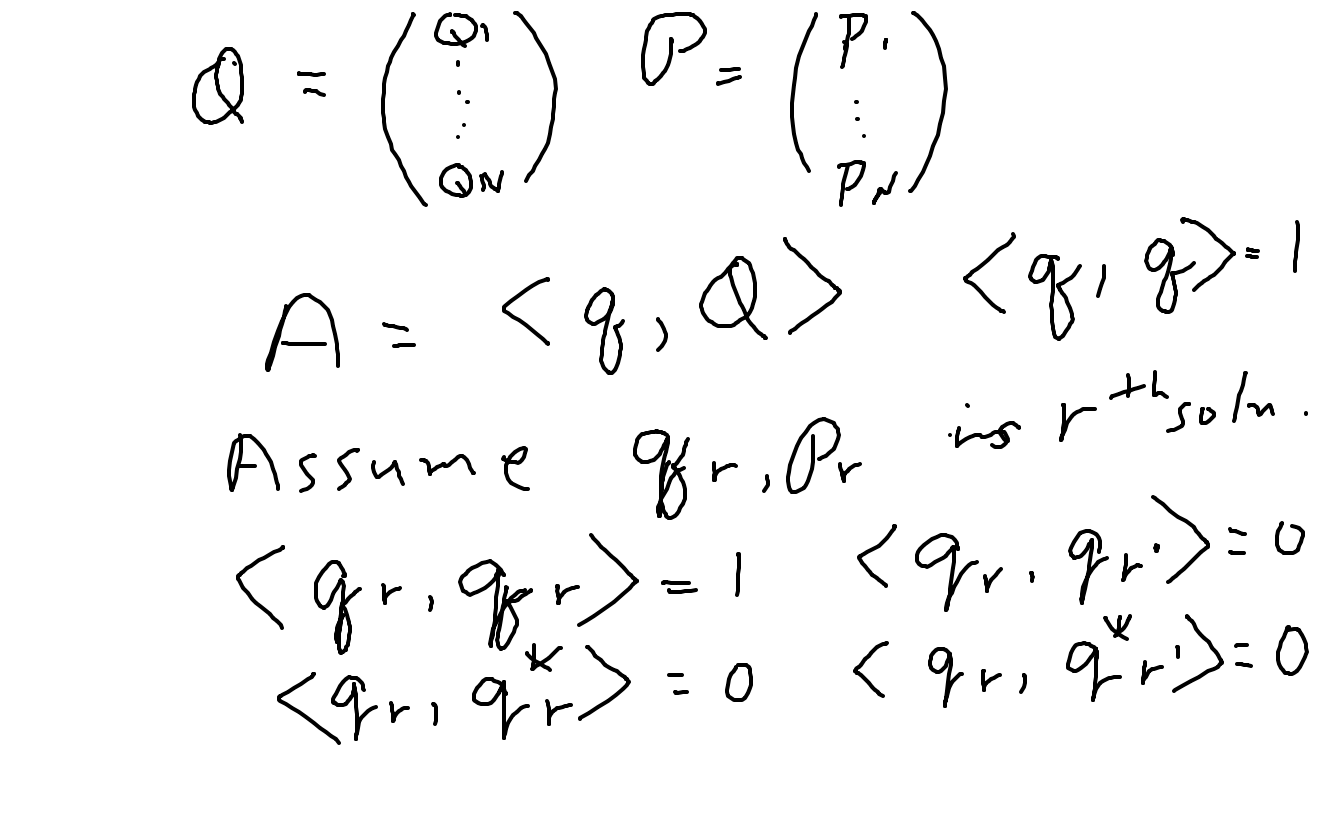 Q = (Q₁ ⋮ Q_N) P = (P₁ ⋮ P_N)
A = <q, Q> <q, q> = 1
Assume q_r, P_r is r^th soln.
<q_r, q_r> = 1 <q_r, q_r'> = 0
<q_r, q_r^*> = 0 <q_r, q_r'^*> = 0